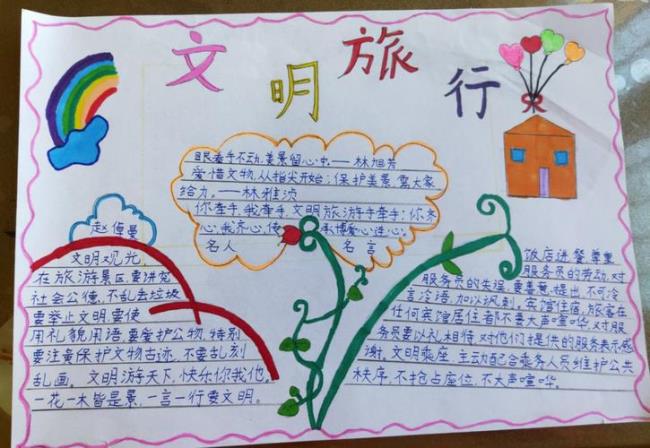 文明旅行
眼看手不动,美景留心中——林旭芳
爱惜文物,从指尖开始;保护美景,需大家
给力。——林雅滨
你牵手,我牵手,文明旅游手牵手;你齐
心,我齐心,传承博爱心连心。
名人名言
赵倬曼
文明观光,
在旅游景区,要讲究
社会公德,不乱丢垃圾
要举止文明,要使
用礼貌用语,要爱护公物,特别
要注意保护文物古迹,不要乱刻
乱画。文明游天下,快乐你我他,
一花一木皆是景,一言一行要文明。
饭店进餐尊重
服务员的劳动,对
服务员的失误,要善意提出,不可冷
言冷语,加以讽刺,宾馆住宿,旅客在
任何宾馆居住都不要大声喧哗,对服
务员要以礼相待,对他们提供的服务表示感
谢。文明乘座,主动配合乘务人员维护公共
秩序,不抢占座位,不大声喧哗。